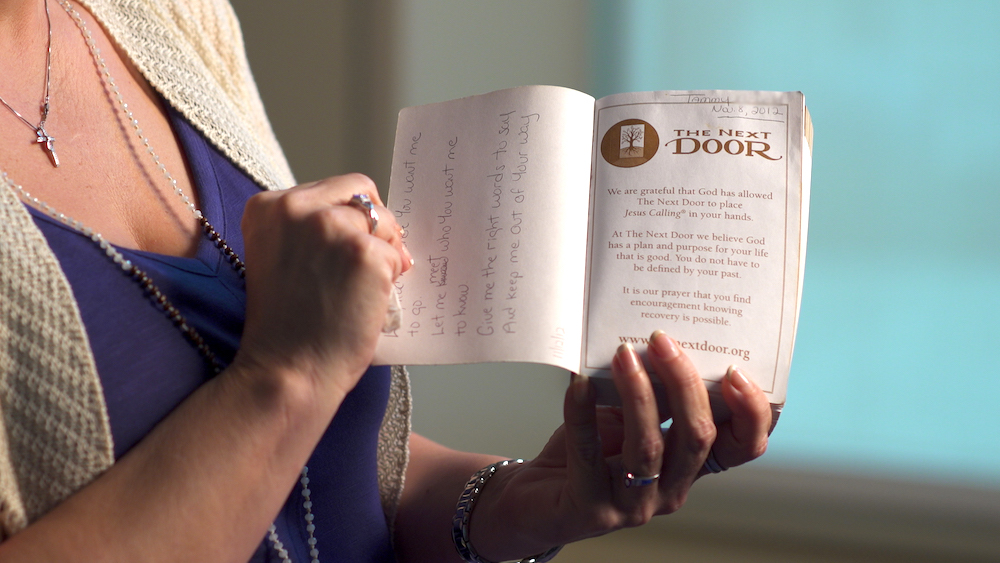 You want me
to go
Let me meet who You want me
to know
Give me the right words to say
And keep me out of Your way
Tammy
Nov. 8, 2012
THE NEXT
DOOR
We are grateful that God has allowed
The Next Door to place
Jesus Calling® in your hands.
At The Next Door we believe God
has a plan and purpose for your life
that is good. You do not have to
be defined by your past.
It is our prayer that you find
encouragement knowing
recovery is possible.
www.thenextdoor.org